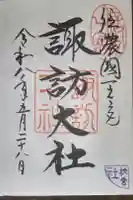 信濃國一之宮
諏訪大社
令和六年五月二十八日